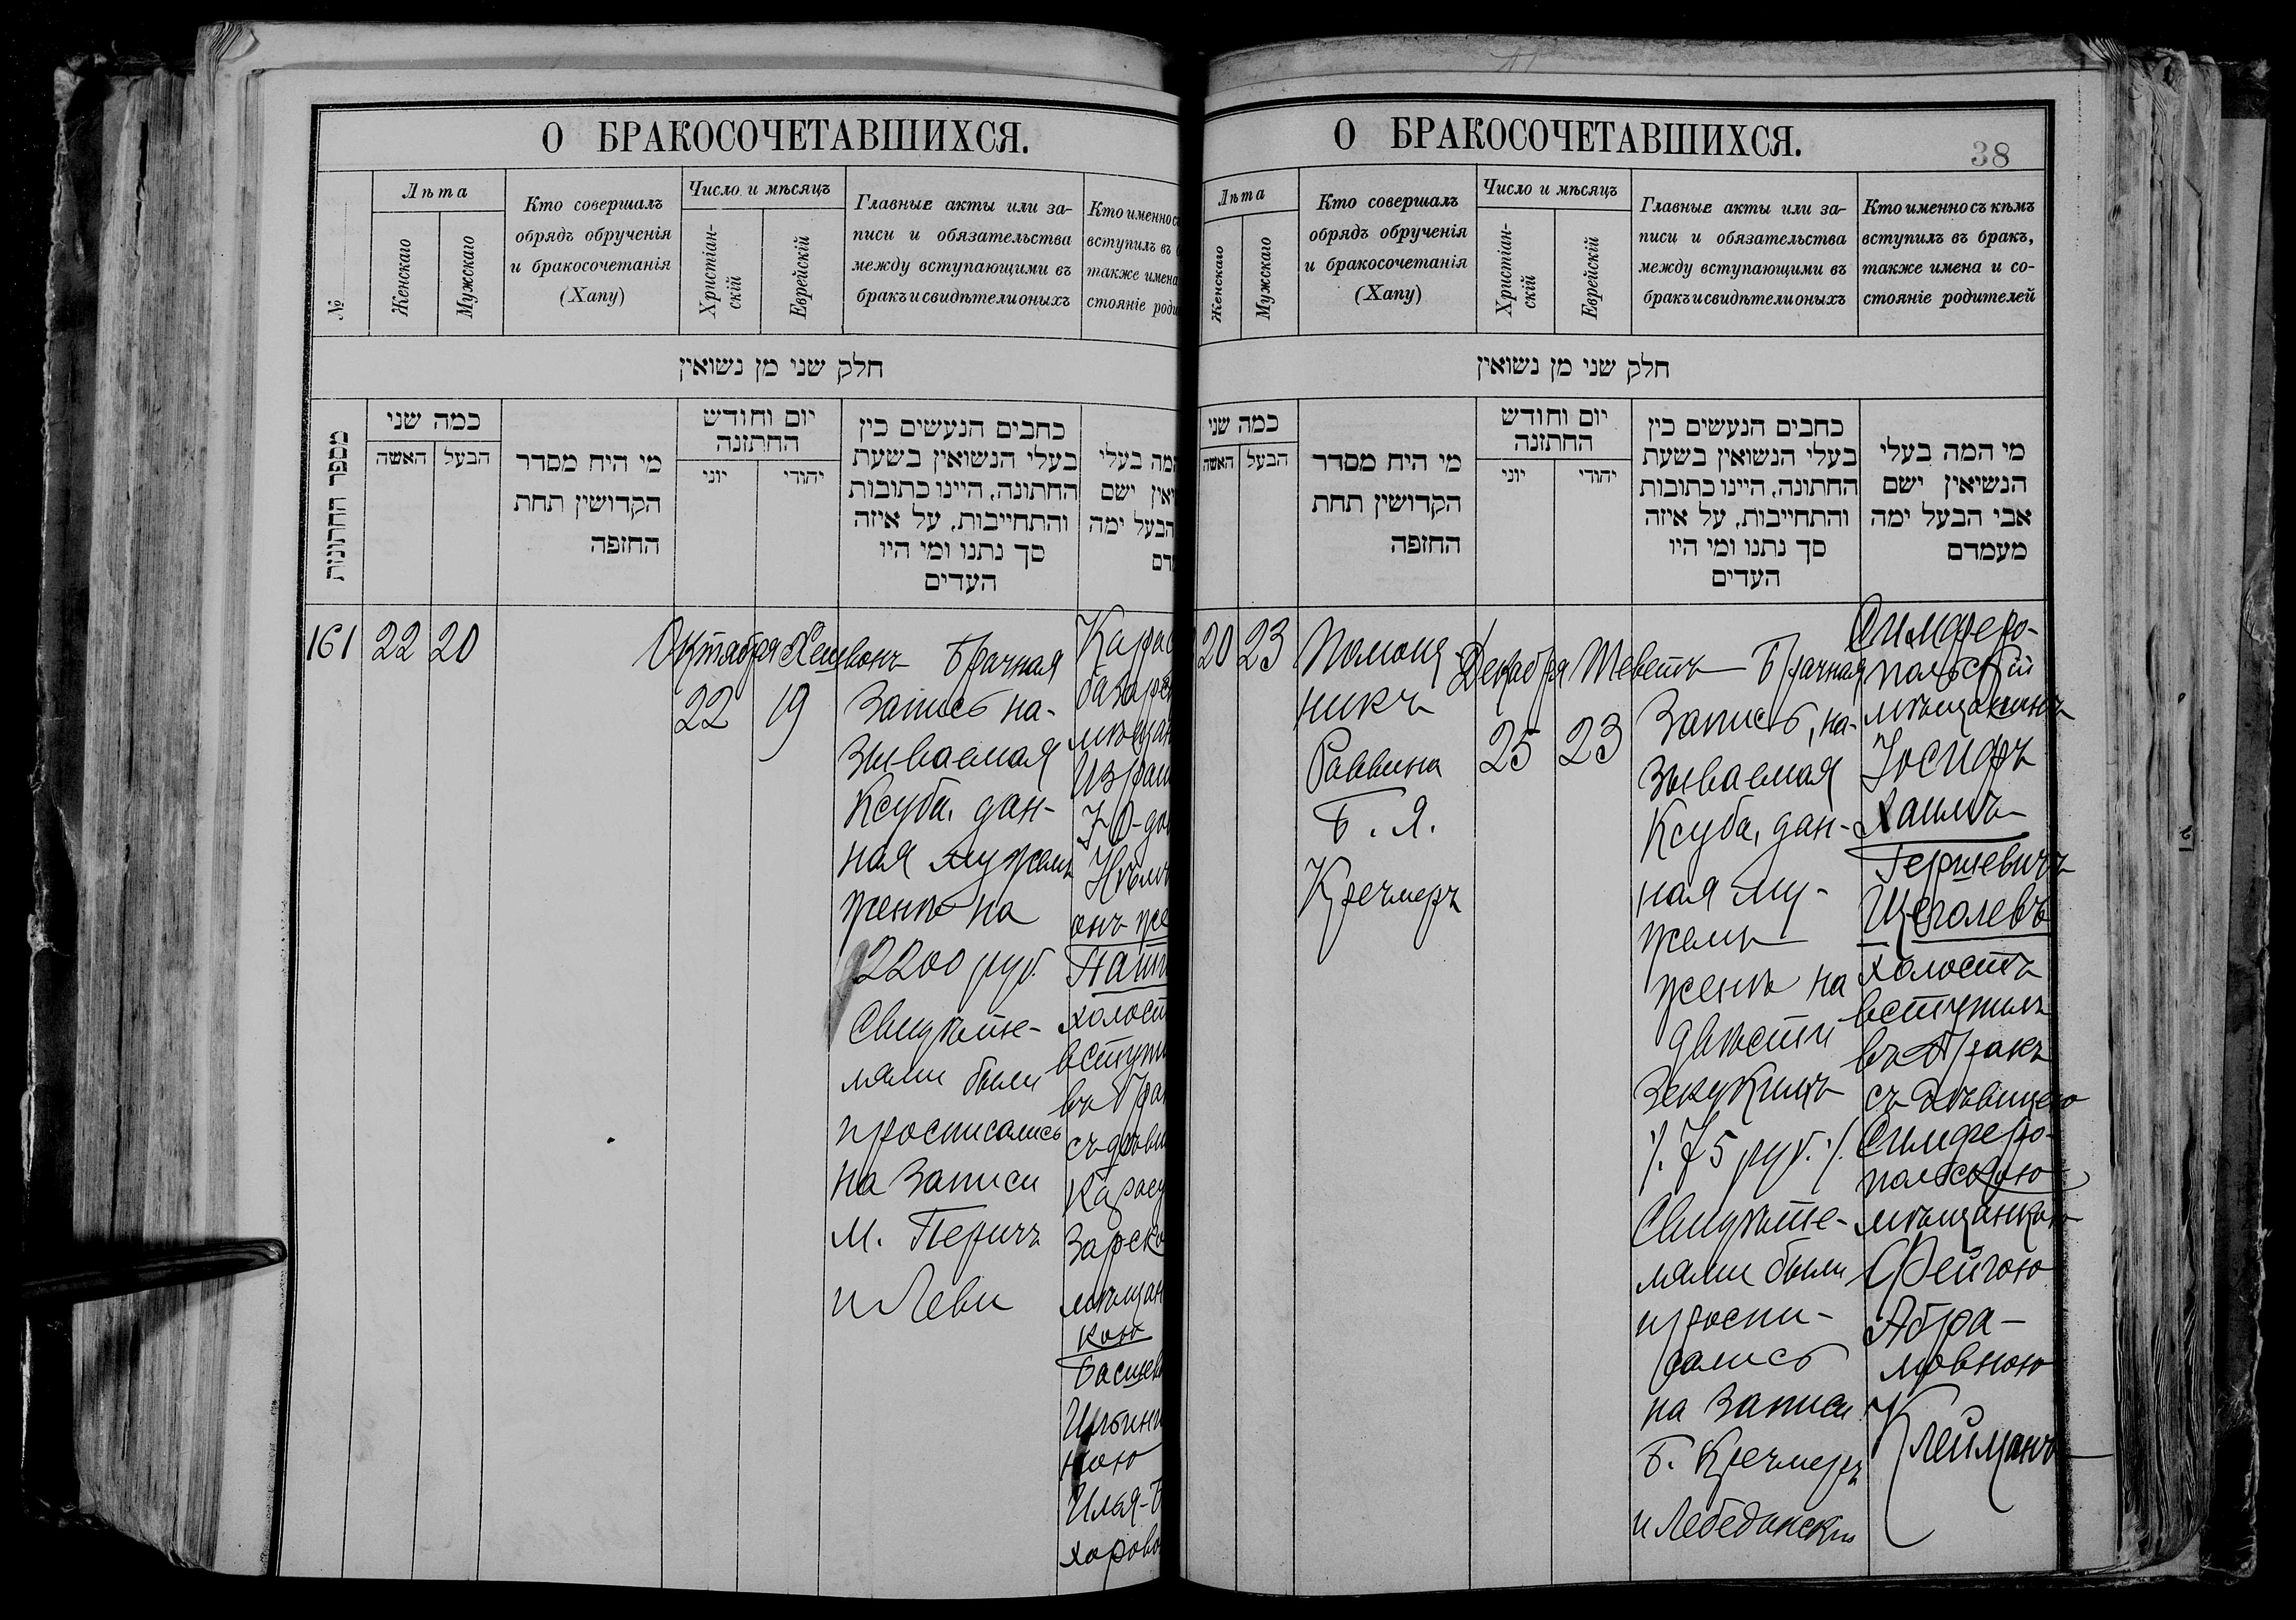 О БРАКОСОЧЕТАВШИХСЯ.
№
Лѣта
Женскаго
Мужскаго
Кто совершалъ
обрядъ обрученія
и бракосочетанія
(Хапу)
Число и мѣсяцъ
Христіан-
скій
Еврейскій
Главные акты или за-
писи и обязательства
между вступающими въ
бракъ и свидѣтели оныхъ
Кто именно съ
вступилъ въ
также имена
стояніе роди
חלק שני מן נשואין
מספר החתונות
כמה שני
האשה
הבעל
מי היח מסדר
הקדושין תחת
החזפה
יום וחודש
החתזנה
יוני
יהודי
כחבים הנעשים כין
בעלי הנשואין בשעת
החתונה, היינו כתובות
והתחייבות, על איזה
סך נתנו ומי היו
העדים
המה בעלי
ואין ישם
הבעל ימה
161
22
20
Октября
22
Хешвонъ
19
Брачная
Запись на-
зываемая
Ксуба, дан-
ная мужемъ
женѣ на
2200 руб.
Свидѣте-
лями были
просписались
на Записи
М. Перичъ
и Леви
холост
вступи
въ бра
Зарско
мѣщан
кою
О БРАКОСОЧЕТАВШИХСЯ.
38
Лѣта
Женскаго
Мужскаго
Кто совершалъ
обрядъ обрученія
и бракосочетанія
(Хапу)
Число и мѣсяцъ
Христіан-
скій
Еврейскій
Главные акты или за-
писи и обязательства
между вступающими въ
бракъ и свидѣтели оныхъ
Кто именно съ кѣмъ
вступилъ въ бракъ,
также имена и со-
стояніе родителей
חלק שני מן נשואין
כמה שני
האשה
הבעל
מי היח מסדר
הקדושין תחת
החזפה
יום וחודש
החתזנה
יוני
יהודי
כחבים הנעשים כין
בעלי הנשואין בשעת
החתונה, היינו כתובות
והתחייבות, על איזה
סך נתנו ומי היו
העדים
מי המה בעלי
הנשיאין ישם
אבי הבעל ימה
מעמדם
20
23
Помощ-
никъ
Раввина
Б. Я.
Кречмеръ
Декабря
25
Теветъ
23
Брачная
Запись, на-
зываемая
Ксуба, дан-
ная му-
жемъ
женѣ на
двѣсти
Зекукимъ
/. 75 руб. /.
Свидѣте-
лями были
проспи-
сались
на Записи
Б. Кречмеръ
и Лебединскій
Симферо-
польскій
мѣщанинъ
Іосифъ
Хаимъ
Гершевичъ
Щеголевъ
холостъ
вступилъ
въ бракъ
съ дѣвицею
Симферо-
польскою
мѣщанкою
Фейгою
Абра-
мовною
Клейманъ